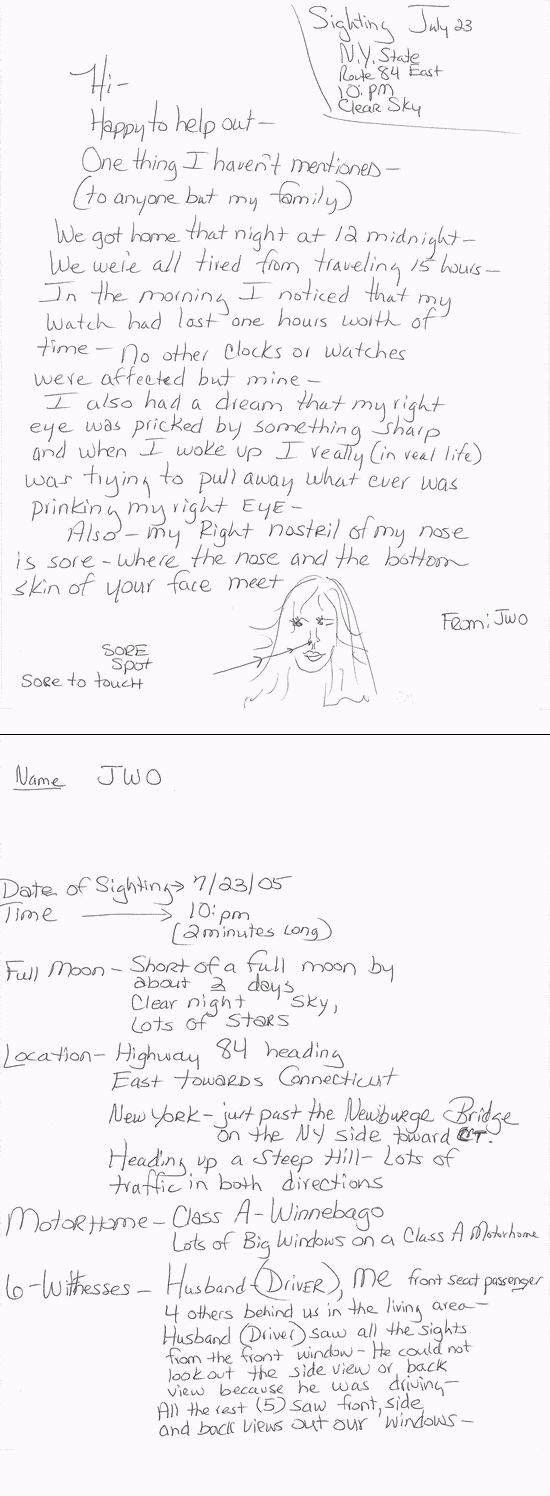 Sighting July 23
N.Y. State
Route 84 East
10:pm
Clear Sky
Hi-
Happy to help out-
One thing I haven't mentioned-
(to anyone but my family)
We got home that night at 12 midnight-
We were all tired from traveling 15 hours-
In the morning I noticed that my
watch had lost one hours worth of
time - No other clocks or watches
were affected but mine-
I also had a dream that my right
eye was pricked by something sharp
and when I woke up I really (in real life)
was trying to pull away what ever was
prinking my right EYE-
Also - my Right nostril of my nose
is sore - where the nose and the bottom
skin of your face meet
From: JWO
SORE
Spot
Sore to touch
Name JWO
Date of Sighting → 7/23/05
Time → 10:pm
(2 minutes long)
Full Moon - Short of a full moon by
about 2 days
Clear night Sky,
Lots of STARS
Location - Highway 84 heading
East towards Connecticut
New York - just past the Newburge Bridge
on the NY side toward CT.
Heading up a Steep Hill - Lots of
traffic in both directions
Motor Home - Class A - Winnebago
Lots of Big Windows on a Class A Motorhome
6 - Witnesses - Husband (Driver), me front seat passenger
4 others behind us in the living area-
Husband (Driver) saw all the sights
from the front window - He could not
look out the side view or back
view because he was driving-
All the rest (5) saw front, side
and back views out our windows-